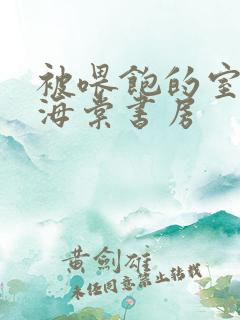 被喂饱的室
海棠书房
黄剑雄
未经同意禁止转载